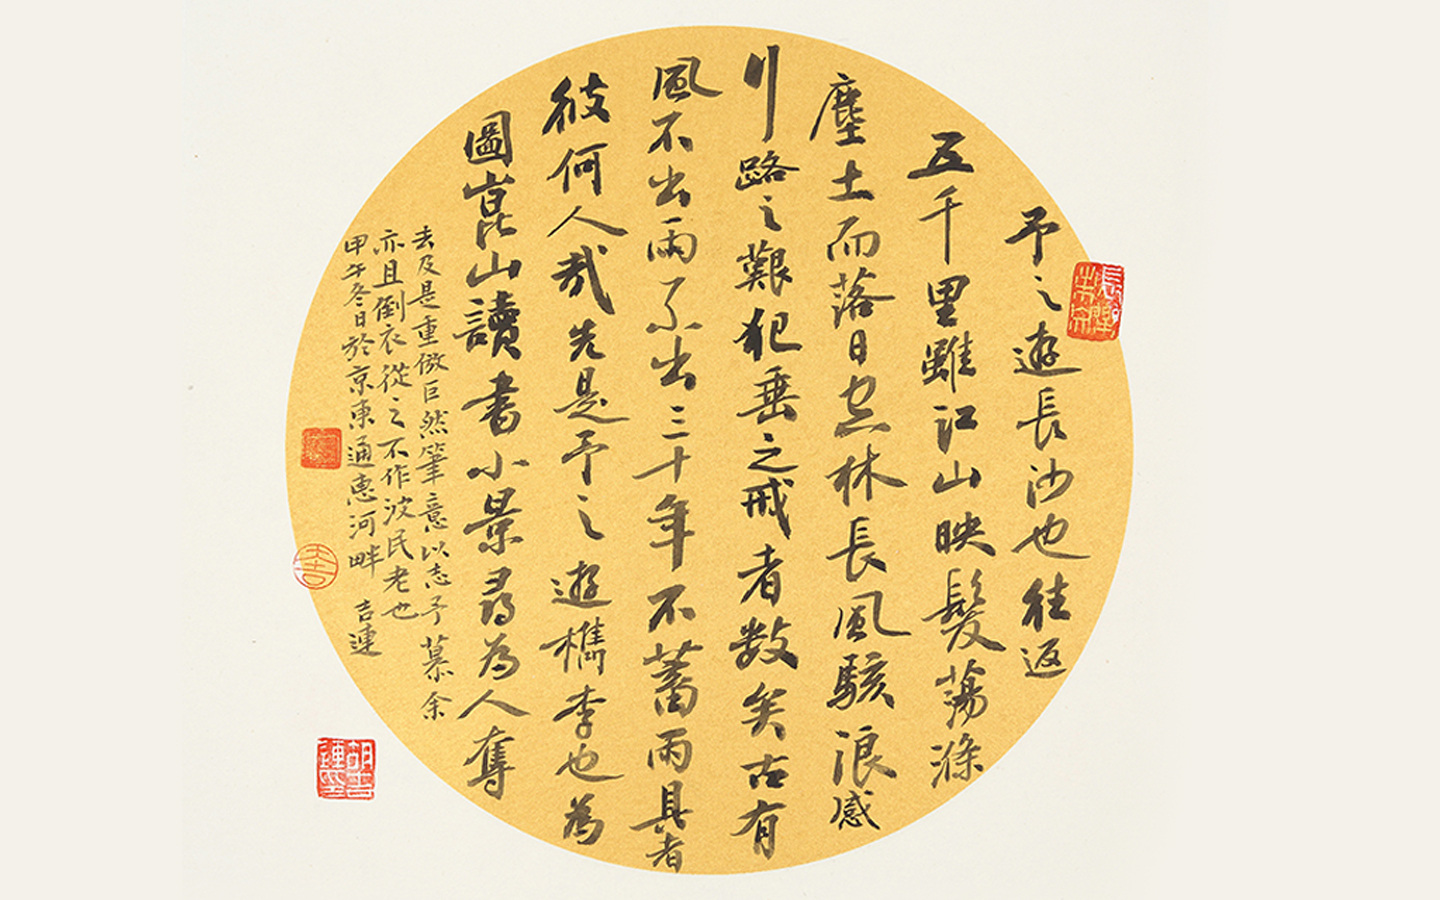 予之遊長沙也往返
五千里雖江山映髮蕩滌
塵土而落日空林長風駭浪感
川路之艱犯垂之戒者数矣古有
風不出雨不出三十年不蓄雨具者
彼何人哉先是予之遊檇李也為
圖崑山讀書小景尋為人奪
去及是重倣巨然筆意以志予慕余
亦且倒衣從之不作波民老也
甲午冬日於京東通惠河畔 吉連